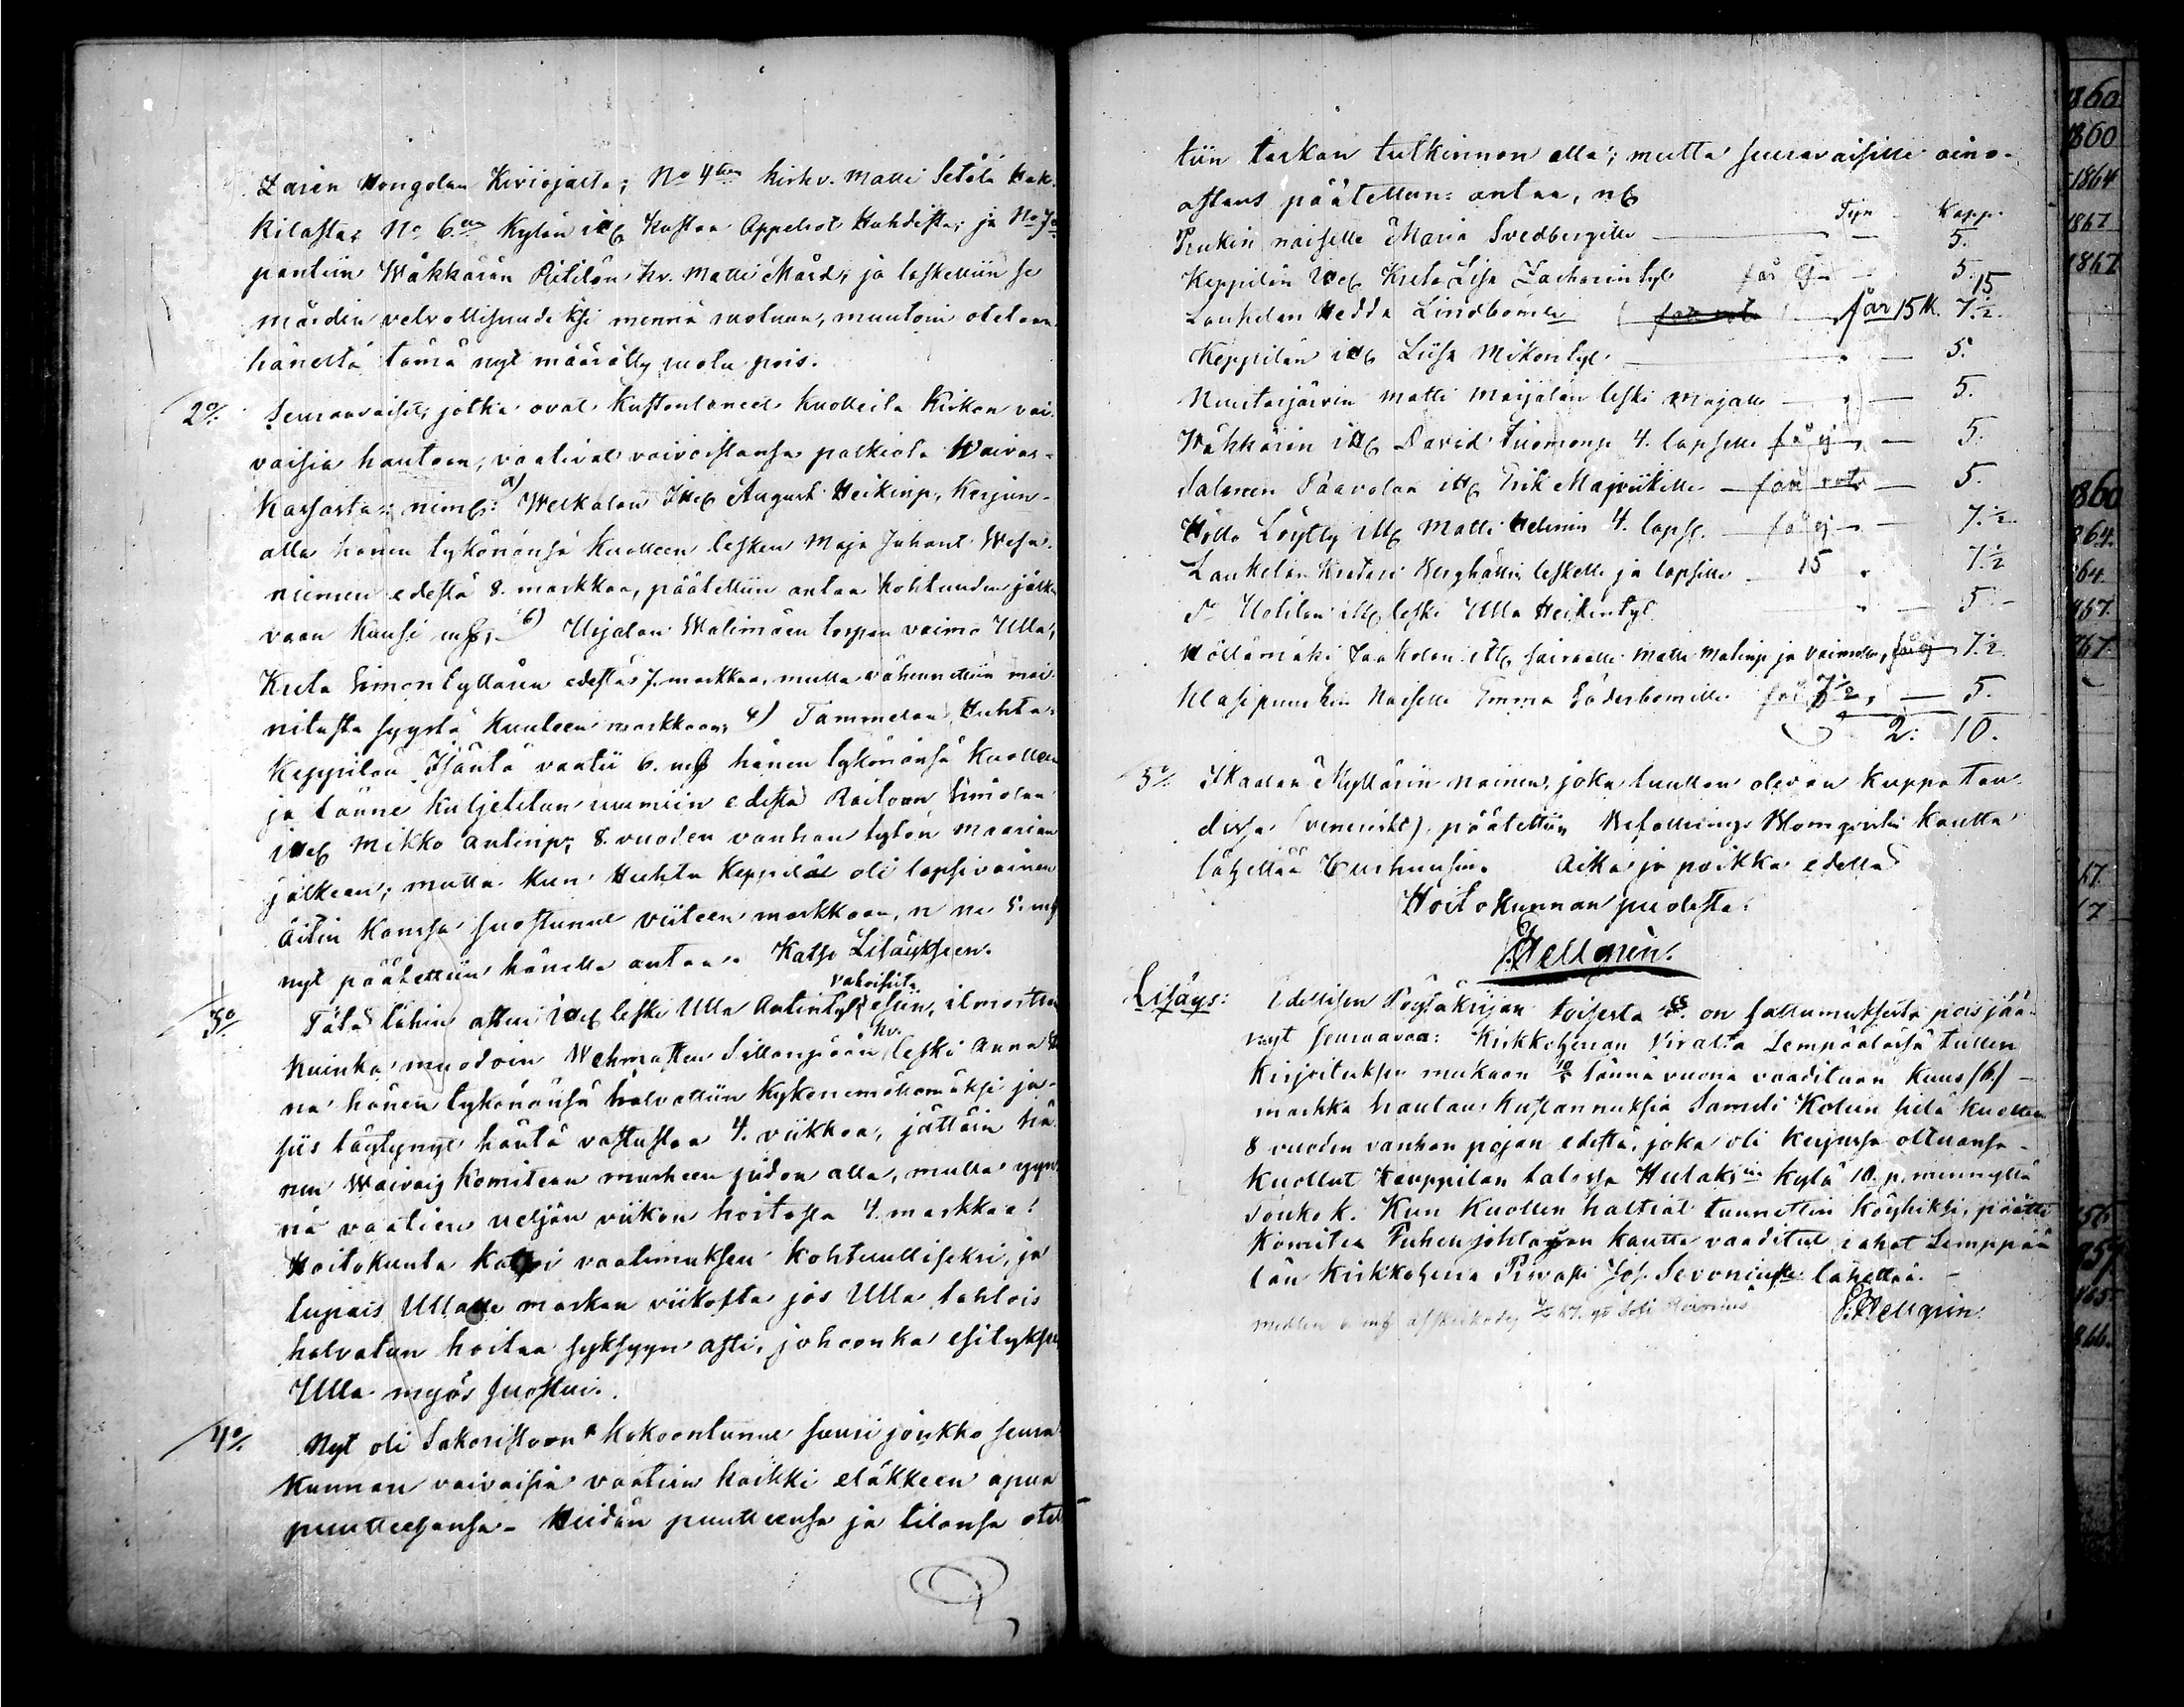 Zarin Hongolan Kiviojalta; No 4ten kirkv. Matti Setälä Kak-
kilasta; No 6en Kylän itll Kustaa Appelrot Kahdista; ja No 7n
pantiin Wäkkärän Ritilän hr. Matti Mård; ja laskettiin se
mårdin velvollisuudeksi mennä ruotuun, muutoin otetaan
häneltä tämä nyt määrätty ruotu pois.
2o/. Seuraavaiset, jotka ovat kustantaneet kuolleita Kirkon vai-
vaisia hautaan, vaativat vaivoistansa palkiota Waivas-
Kassasta: nimll: a) Weikkolan Itll August Heikinp, Kerjuu-
alla hänen tykönänsä kuolleen lesken Maja Juhant. Wesa-
niemen edestä 8. markkaa, päätettiin antaa kohtuuden jälke
vaan kuusi mk; b) Urjalan Walimäen torpan vaimo Ulla,
Kreta Simontyttären edestä 7. markkaa, mutta vähennettiin mai-
nitusta syystä kuuteen markkaan; c) Tammelan Huhta-
Keppilän Isäntä vaatii 6. mk hänen tykönänsä kuolleen
ja tänne kuljetetun ruumiin edestä Raitoon Simolan
itll Mikko Antinp; 8. vuoden vanhan tytön Maarian
jälkeen; mutta kun Huhta Keppilä oli lapsivainen
äitin kanssa suostunut viiteen markkaan, n ne 5. mk
nyt päätettiin hänelle antaa. Katso Lisäykseen.
3o/. Tätä lähin astui itll leski Ulla Antintyt. vakaisista esiin, ilmoittaen
kuinka muodoin Wehmaan Sillanpään hr. leski Anna
na hänen tykönänsä halvattiin kykenemättömäksi ja
siis täytynyt häntä vastustaa 4. viikkoa, jättäin hä-
nen Waivais Komitean murheen pidon alla, mutta pyyn-
nä vaatien neljän viikon hoitosta 4. markkaa!
Hoitokunta katsoi vaatimuksen kohtuulliseksi, ja
lupais Ullalle markan viikosta jos Ulla tahtois
halvatun hoitaa syksyyn asti, johonka esitykseen
Ulla myös suostui.
4o/. Nyt oli Sakaristoon kokoontunut suuri joukko seura-
kunnan vaivaisia vaatien kaikki eläkkeen apua
puutteesansa. Heidän puutteensa ja tilansa otet-
tiin tarkan tutkinnon alla; mutta seuraavaisille aino-
astans päätettiin antaa, nll
Tyn Kapp.
Prukin naiselle Maria Svedbergille — 5.
Keppilän itll Kreta Lisa Zacharintyt får ej — 5.
15
Laukelan Hedda Lindbomille får 15 k. 7.½
Keppilän itll Liisa Mikontyt — 5.
Nuutajärvin Matti Maijalan leski Majalle — 5.
Wäkkärin itll David Tuomonp 4. lapselle får ej — 5.
Salmen Paavolan itll Erik Majviikille — får — 5.
Höllo Löytty itll Matti Helenin 4. laps. — får ej — 7.½
Laukelan Kreteri Berghällin leskelle ja lapsille 15 7.½
Uotilan itll leski Ulla Heikintyt — 5 –
Höllämäki Jaakolan itll sairaalle Matti Matinp ja vaimolle, får ej 7.½
Klasipruukin Naiselle Emma Söderbomille får 7½, — 5.
2: 10.
5o/. Skaalan Myllärin nainen, joka luullaan olevan kuppatau-
dissa (veneriskt), päätettiin Befallnings Blomqvistin kautta
lähettää Curhuusiin. Aika ja paikka edellä
Hoitokunnan puolesta:
Hellgrén.
Lisäys: Edellisen Pöytäkirjan toisesta §. on sattumuksesta pois jää-
nyt seuraavaa: Kirkkoherran Viralta Lempäälässä tullen
kirjoituksen mukaan 10/5 tänä vuona vaaditaan kuus (6.) –
markka hautaus kustannuksia Samelin Kolun sielä kuolleen
8 vuoden vanhan pojan edestä, joka oli kerjuussa ollenansa –
kuollut Kauppilan talossa Hulaksin kylä 10. p. mennyttä
Toukok. Kun kuolleen haltiat tunnettiin köyhiksi, päätti
Komitea Puhenjohtajan kautta vaaditut rahat Lemppää-
län Kirkkoherra Provasti Jos. Sevoniuselle lähettää. –
Hellgrén.
1860
1860
1864
1867
1867
1860